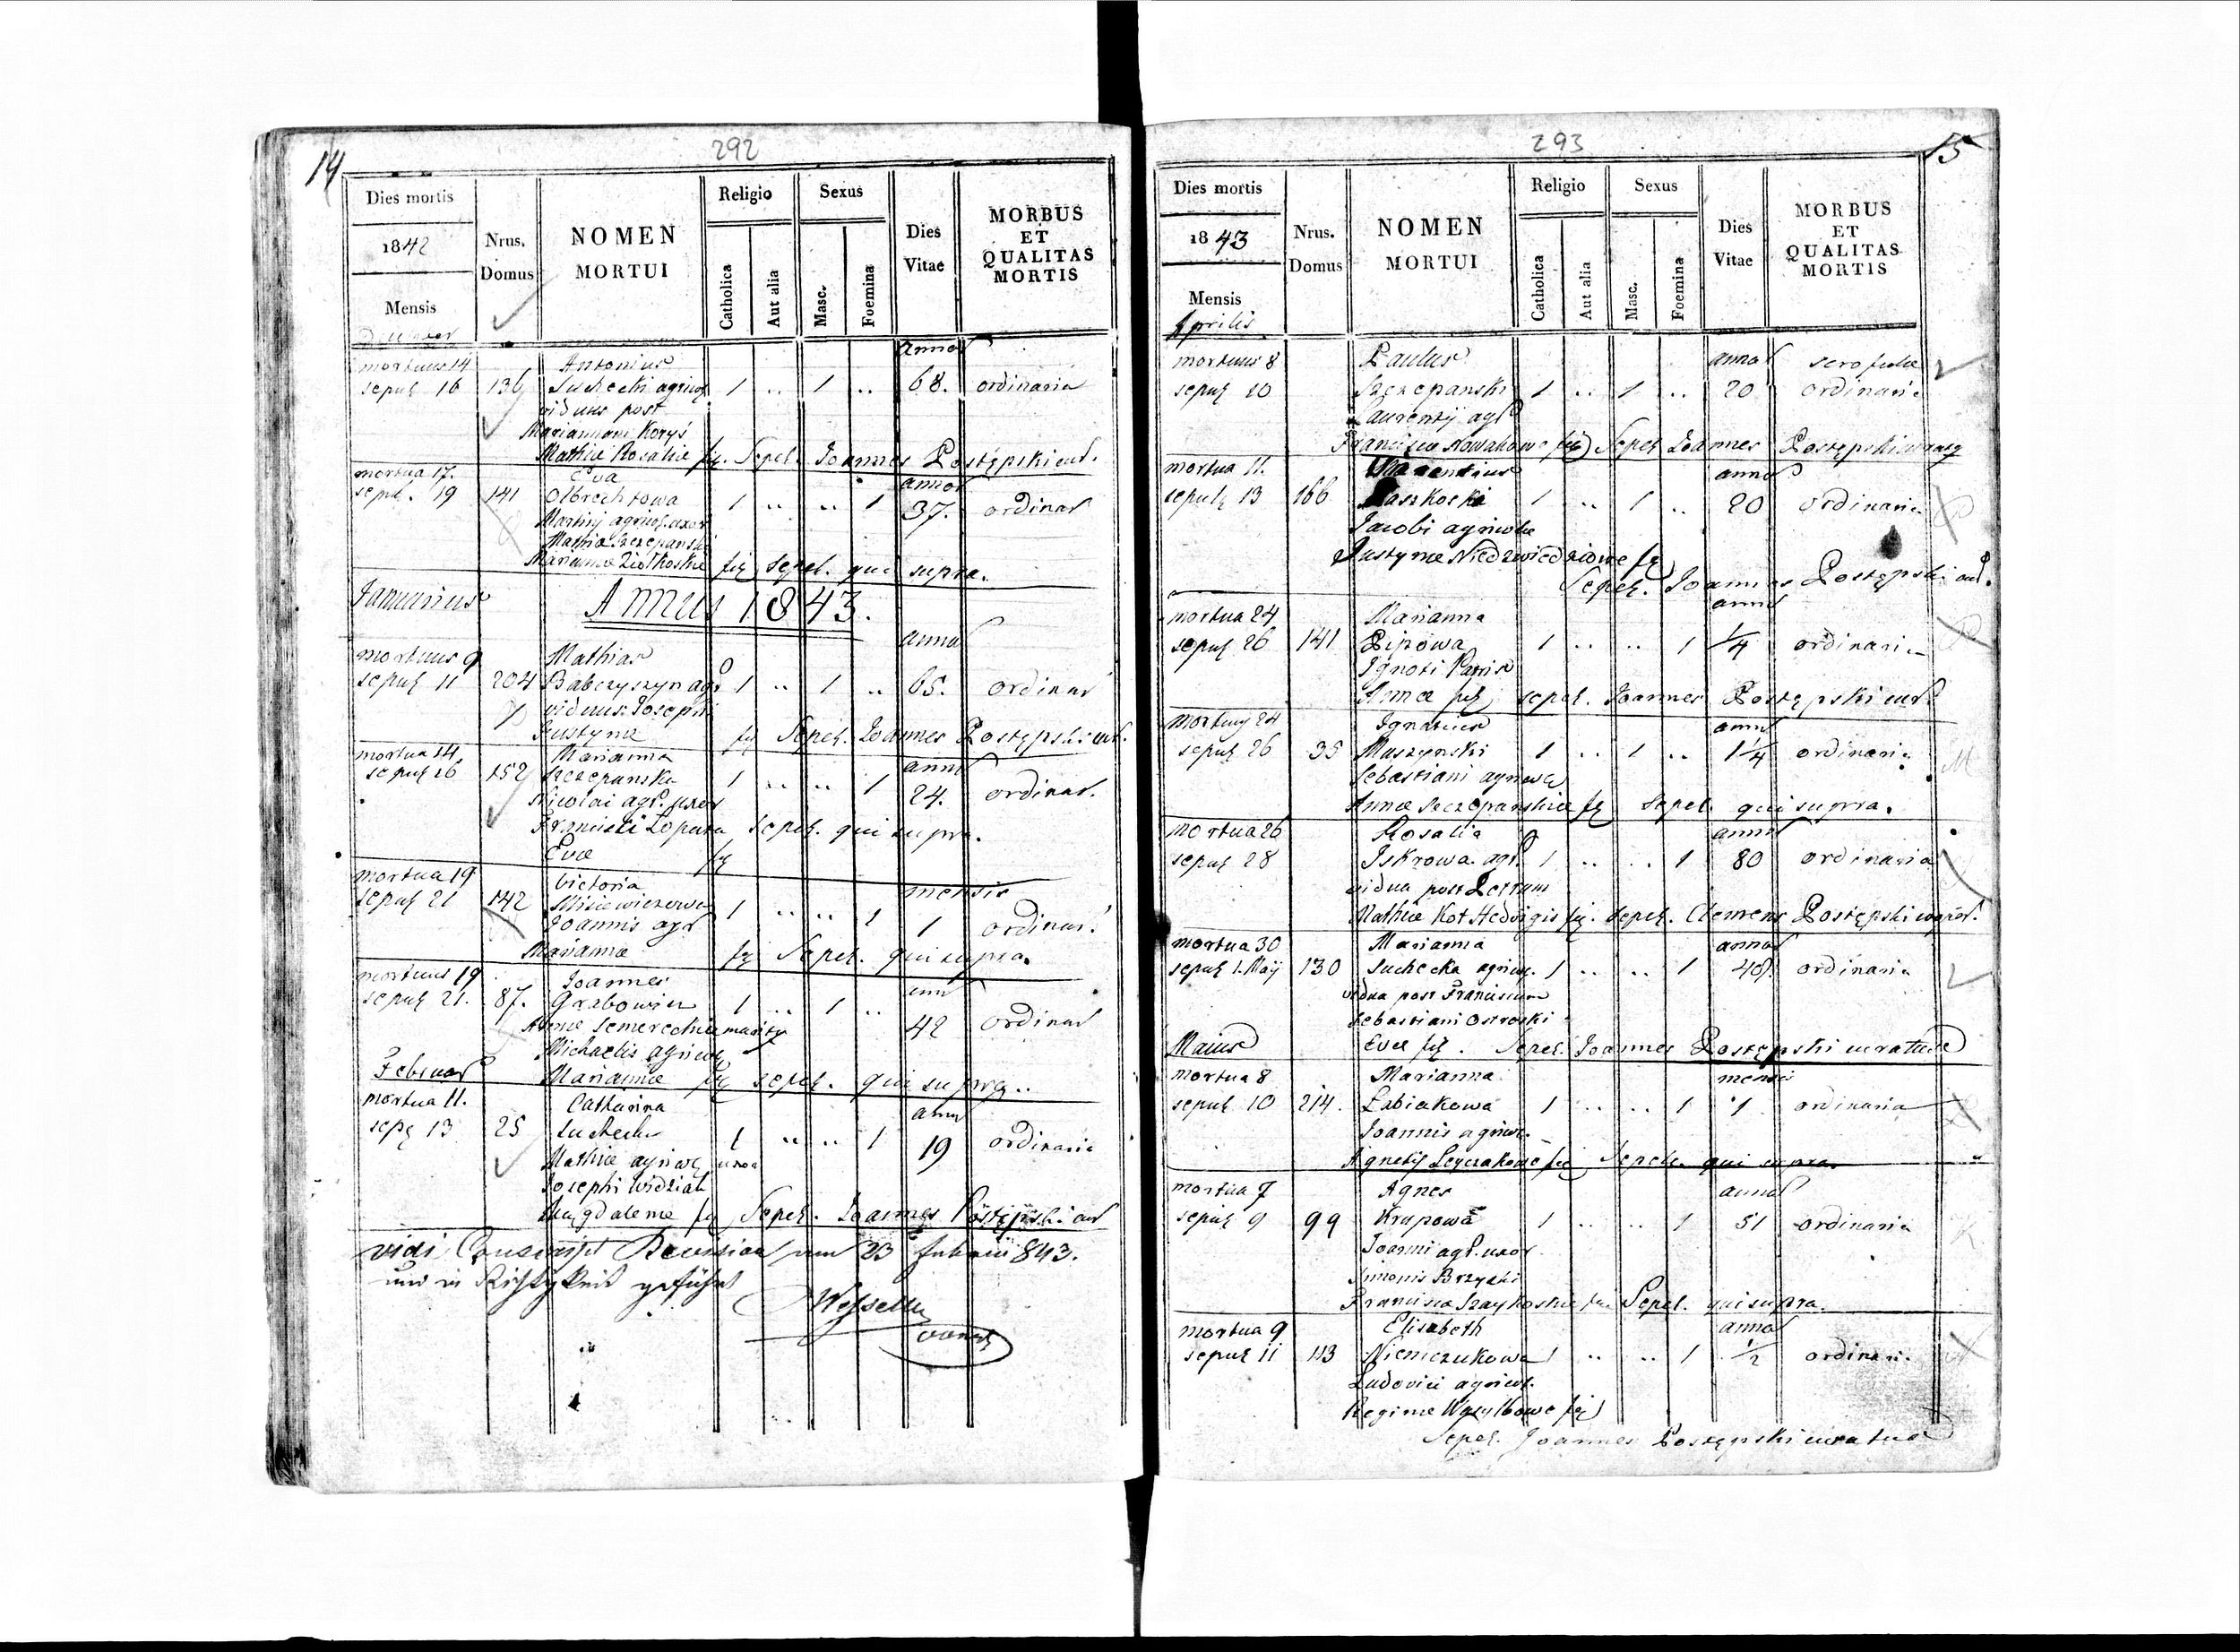 14
292
Dies mortis
1842
Mensis
Nrus. Domus
NOMEN MORTUI
Religio
Catholica
Aut alia
Sexus
Masc.
Foemina
Dies Vitae
MORBUS ET QUALITAS MORTIS
mortuus 14 Antonius annos
sepul 16 136 Suchecki agricol 1 .. 1 .. 68. ordinaria
viduus post
Mariannam Koryś
Mathiae Rosaliae fil. Sepel. Joannes Postępski cur.
mortua 17. Eva annos
sepul. 19 141 Olbrechtowa 1 .. .. 1 37. ordinar
Martini agricol. uxor
Mathia Szczepanski
Marianna Ziolkoskie fil sepel. qui supra.
Januarius Annus 1843.
annos
mortuus 9 Mathias
sepul 11 204 Babczyszyn agr 1 .. 1 .. 65. ordinar
viduus Josephi
Justyna fil Sepel. Joannes Postępski cur.
mortua 14. Marianna annos
sepul 16 152 Szczepanska 1 .. .. 1 24. ordinar.
Nicolai agr. uxor
Francisci Lopura Sepel. qui supra.
Evae fil
mortua 19 Victoria mensis
sepul 21 142 Misiewiczowa 1 .. .. 1 1 ordinar.
Joannis agr
Marianna fil Sepel. qui supra.
mortuus 19 Joannes
sepul 21. 87. Garbowicz 1 .. 1 .. 42 ordinar
Annae Semerechia
Michaelis agricol
Februar Mariannae fil sepel. qui supra..
mortua 11. Catharina
sepul 13 25 1 .. .. 1 19 ordinaria
Mathiae agricol uxor
Josephi Widzial
Magdalenae fil Sepel. Joannes Postępski cur
vidi 23 843.
und in Richtigkeit geführt
293
15
Dies mortis
1843
Mensis
Aprilis
Nrus. Domus
NOMEN MORTUI
Religio
Catholica
Aut alia
Sexus
Masc.
Foemina
Dies Vitae
MORBUS ET QUALITAS MORTIS
mortuus 8 Paulus annos
sepul 10 Szczepanski 1 .. 1 .. 20 ordinaria
Laurentij agr
Francisca Nowakowe fil Sepel Joannes Postępski
mortua 11. annos
sepul 13 166 1 .. 1 .. 20 ordinaria
Jacobi agricolae
Justynae Niedzwiedziowe fil
Sepel. Joannes Postępski cur.
mortua 24 Marianna
sepul 26 141 Lipowa 1 .. .. 1 1/4 ordinaria
Ignoti Patris
Annae fil sepel. Joannes Postępski cur
mortuus 24 Ignatius
sepul 26 35 Muszynski 1 .. 1 .. 1 1/4 ordinaria
Sebastiani agricol
Annae Szczepanskie fil Sepel. qui supra.
mortua 26 Rosalia
sepul 28 Iskrowa agr. 1 .. .. 1 80 ordinaria
vidua post Petrum
Mathiae Kot Hedvigis fil. Sepel. Clemens Postępski
mortua 30 Marianna annos
sepul 1. Maij 130 Suchecka agricol. 1 .. .. 1 40 ordinaria
vidua post Franciscum
Sebastiani Ostroski
Maius Evae fil. Sepel. Joannes Postępski curatus
mortua 8 Marianna mensis
sepul 10 214. Labiakowa 1 .. .. 1 1 ordinaria
Joannis agricol.
Agnetis fil Sepel. qui supra
mortua 7 Agnes annos
sepul 9 99 Krupowa 1 .. .. 1 51 ordinaria
Joanni agr. uxor
Simonis Brzyski
Francisca fil. Sepel. qui supra.
mortua 9 Elisabeth annos
sepul 11 113 Niemczukowa 1 .. .. 1 1/2 ordinari.
Ludovici agricol.
Reginae fil
Sepel. Joannes Postępski curatus